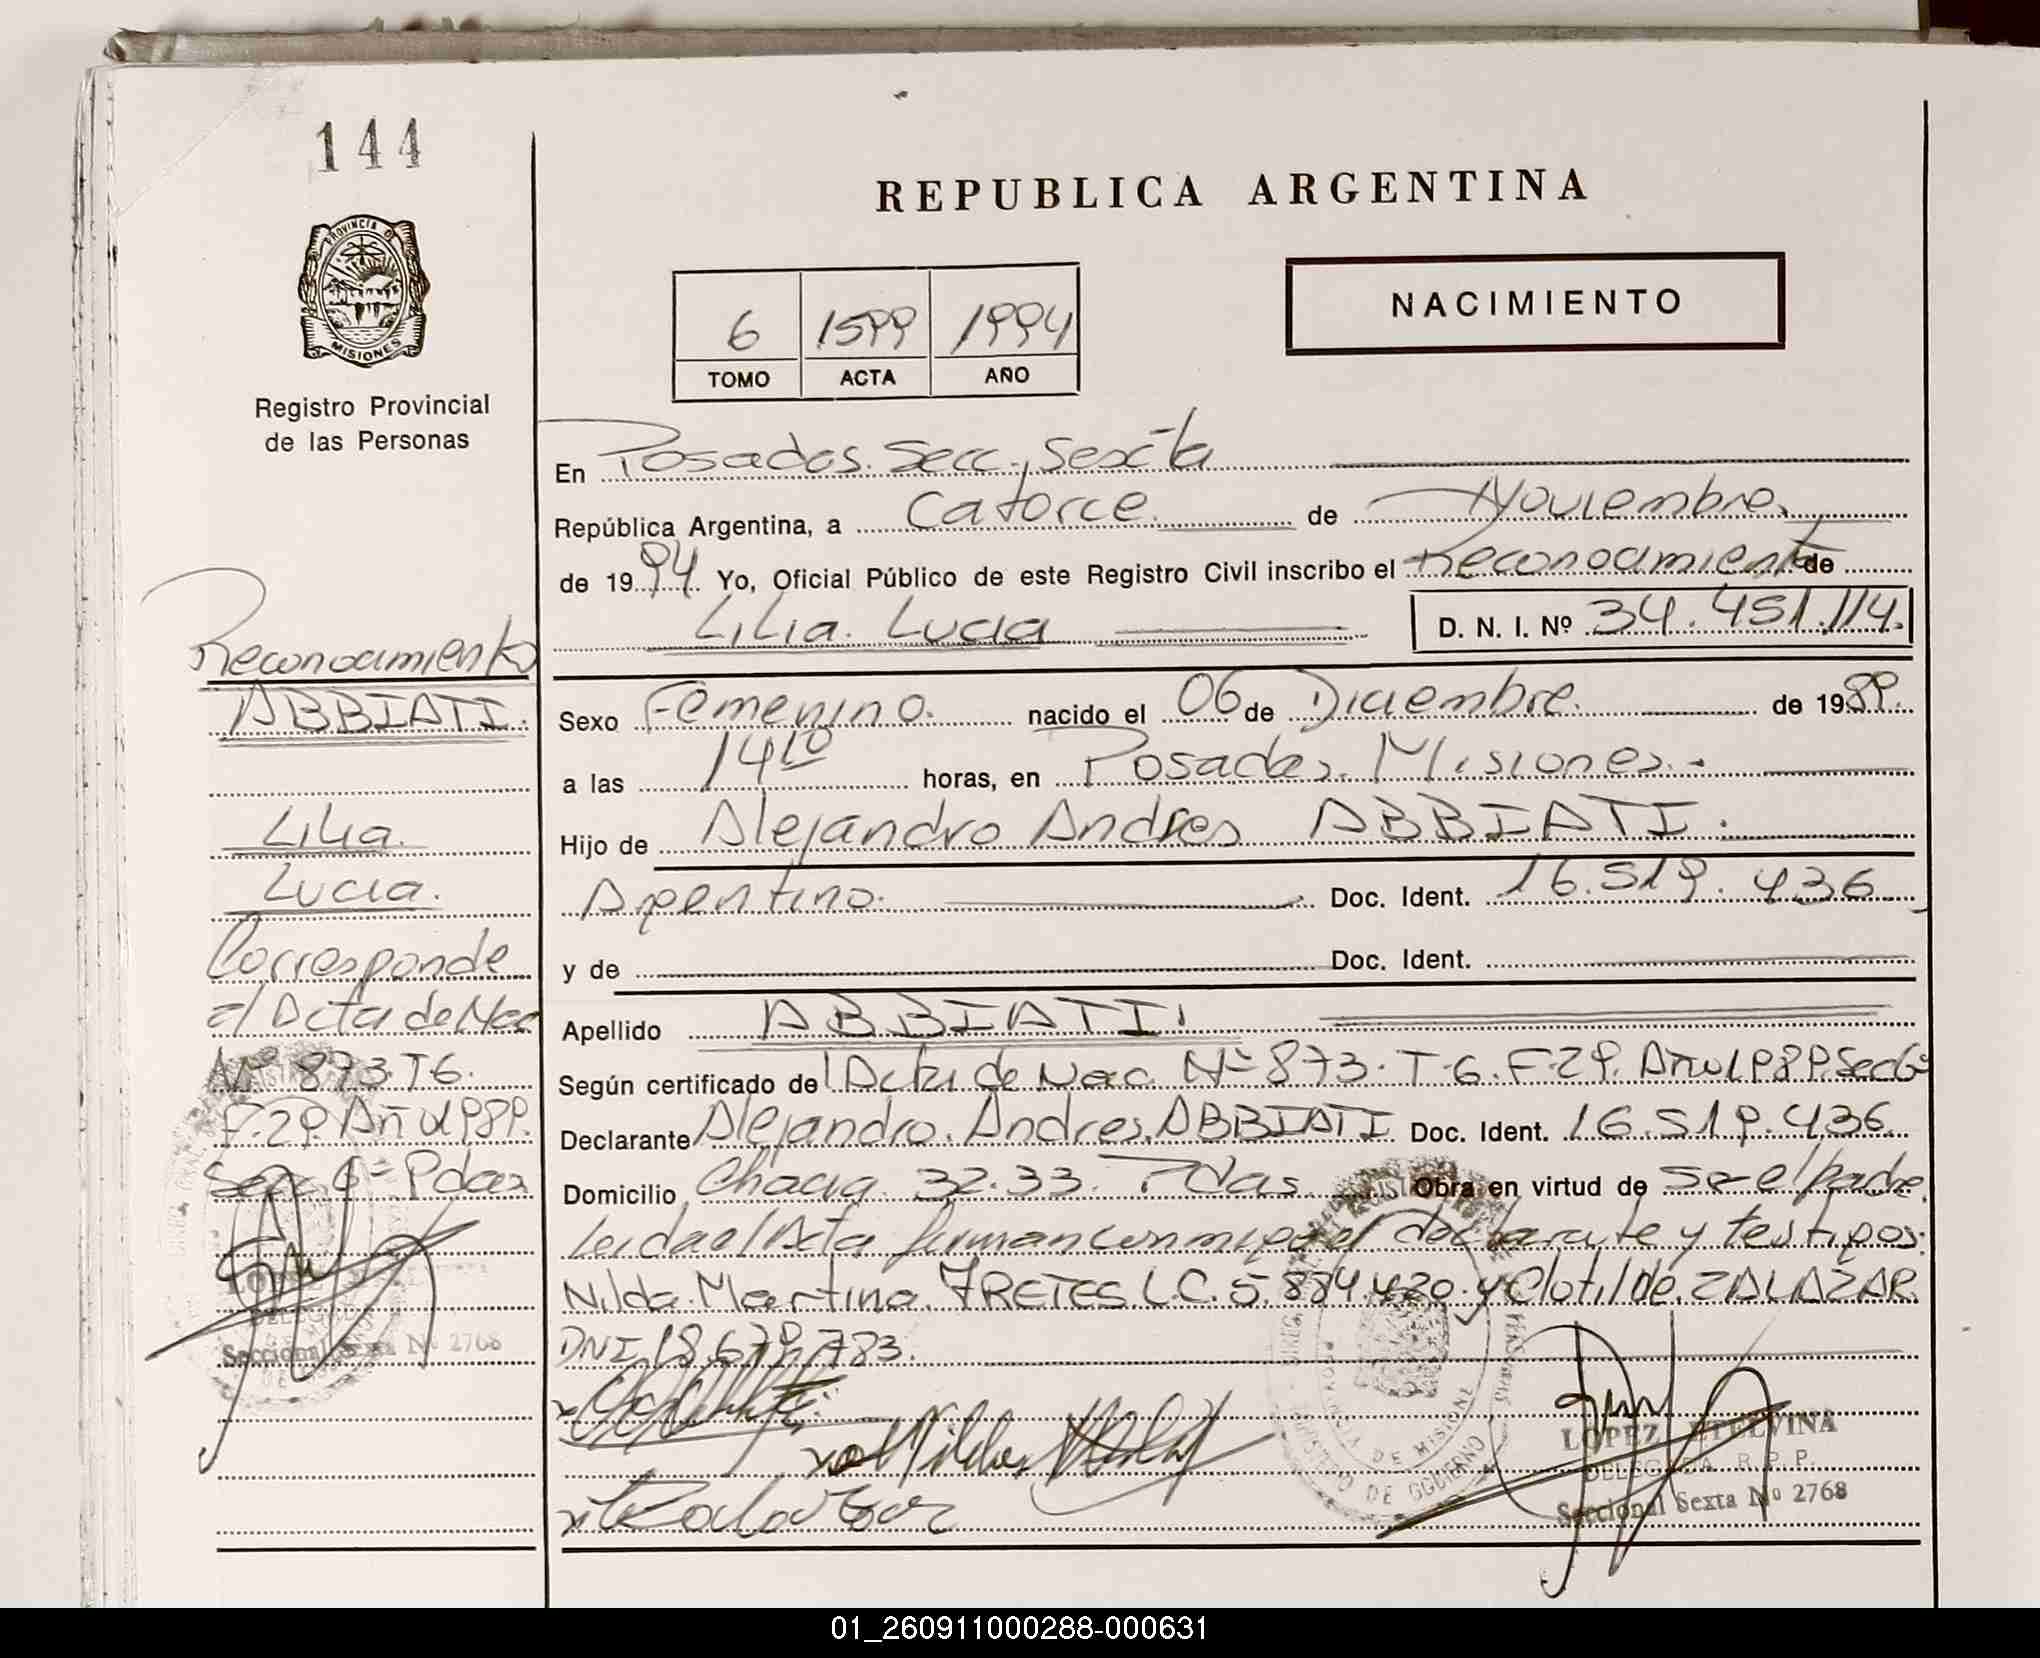 144
REPUBLICA ARGENTINA
PROVINCIA D
MISIONES
Registro Provincial
de las Personas
6 1599 1994
TOMO ACTA AÑO
NACIMIENTO
En Posadas. Secc. Sexta
República Argentina, a Catorce. de Noviembre.
de 1994. Yo, Oficial Público de este Registro Civil inscribo el Reconocimiento de
Lilia. Lucia D. N. I. Nº 34.451.114.
Sexo Femenino. nacido el 06 de Diciembre. de 1989.
a las 14 10 horas, en Posadas. Misiones.-
Hijo de Alejandro Andres ABBIATI.
Argentino. Doc. Ident. 16.519.436
y de Doc. Ident.
Apellido ABBIATI.
Según certificado de Acta de Nac. Nº 873. T-6. F-29. Año 1989. Sec 6º
Declarante Alejandro. Andres. ABBIATI Doc. Ident. 16.519.436.
Domicilio Chacra 32.33. Pdas. Obra en virtud de ser el padre.
leida el Acta firman conmigo el declarante y testigos:
Nilda. Martina. FRETES L.C. 5.884.420. y Clotilde. ZALAZAR
DNI. 18.679.783.
LOPEZ ETELVINA
DELEGADA R. P. P.
Seccional Sexta Nº 2768
Reconocimiento
ABBIATI.
Lilia.
Lucia.
Corresponde
al Acta de Nac
Nº 873. T6.
F. 29. Año 1989.
Secc. 6ª Pdas
Seccional Sexta Nº 2768
PROVINCIA DE MISIONES
MINISTERIO DE GOBIERNO
01_260911000288-000631